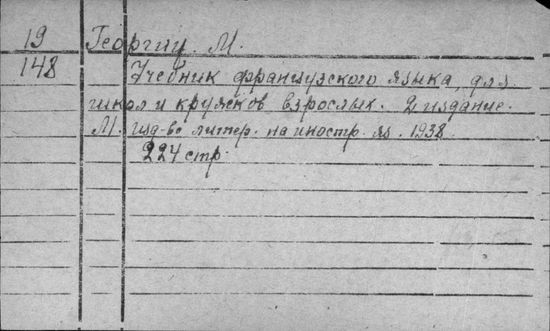 19 Георгиу. М.
148 Учебник французского языка, для
школ и кружков взрослых. 2 издание.
М. изд-во литер. на иностр. яз. 1938.
224 стр.